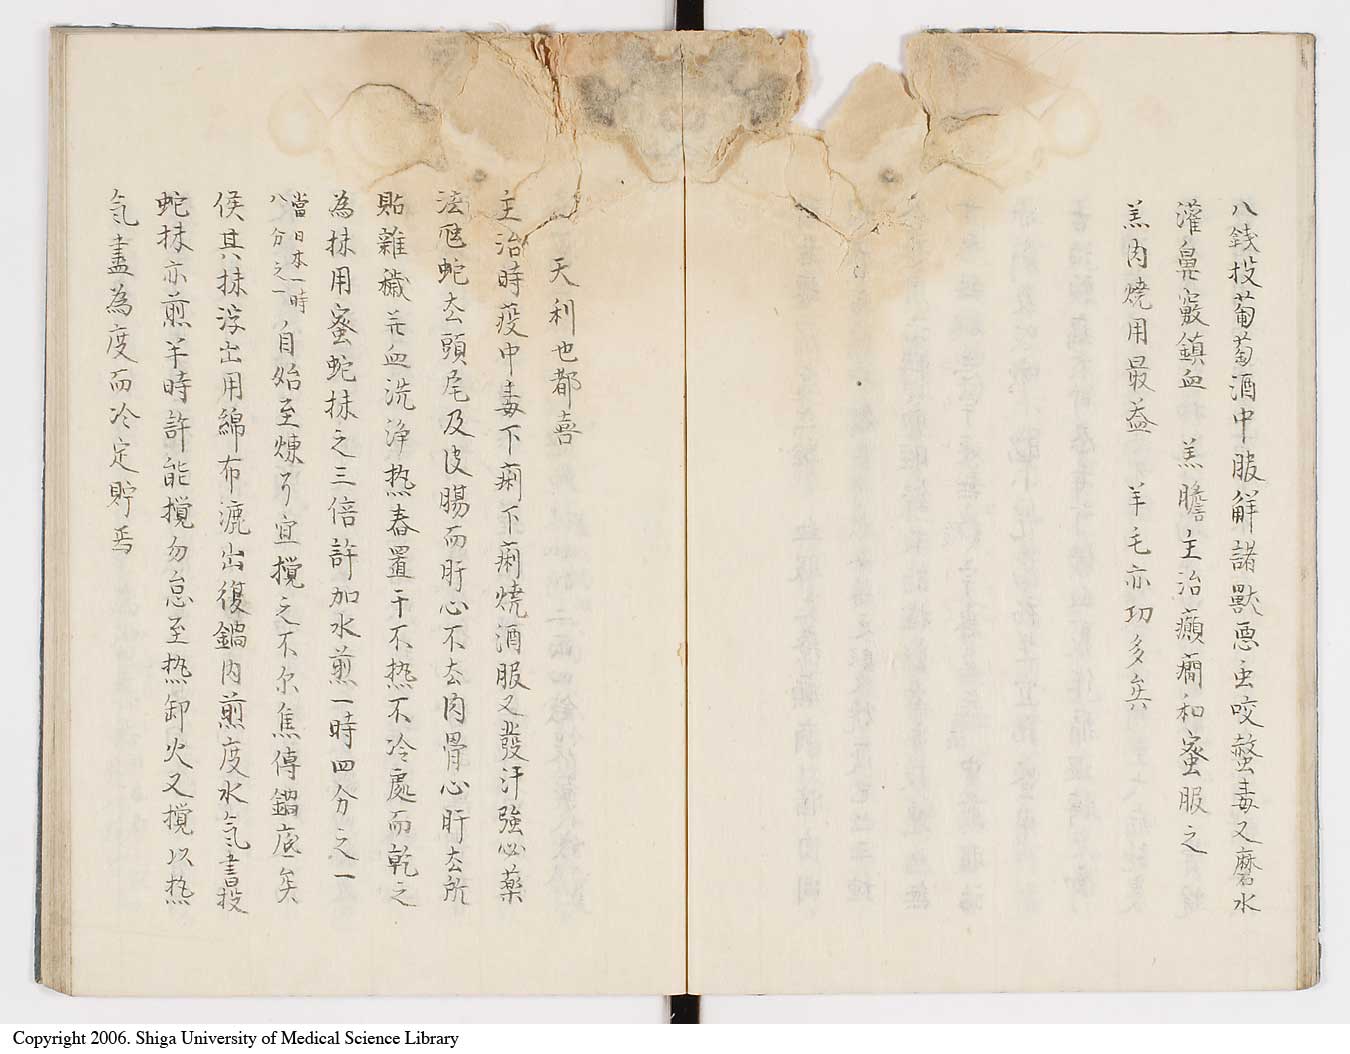 八銭投葡萄酒中服解諸獣悪虫咬螫毒又磨水
灌鼻竅鎮血 羔膽主治癩癇和蜜服之
羔肉焼用最益 羊毛亦功多矣
天利也都喜
主治時疫中毒下痢下痢焼酒服又發汗強心薬
法 蛇去頭尾及皮腸而肝心不去肉骨心肝去所
貼雜穢并血洗浄热春置于不热不冷處而乾之
為抹用蜜蛇抹之三倍許加水煎一時四分之一
當日本一時
八分之一
自始至煉了宜攪之不尔焦傳鍋底矣
侯其抹浮出用綿布漉出復鍋内煎度水气書投
蛇抹亦煎半時許能攪勿怠至热卸火又攪以热
气盡為度而冷定貯焉
Copyright 2006. Shiga University of Medical Science Library